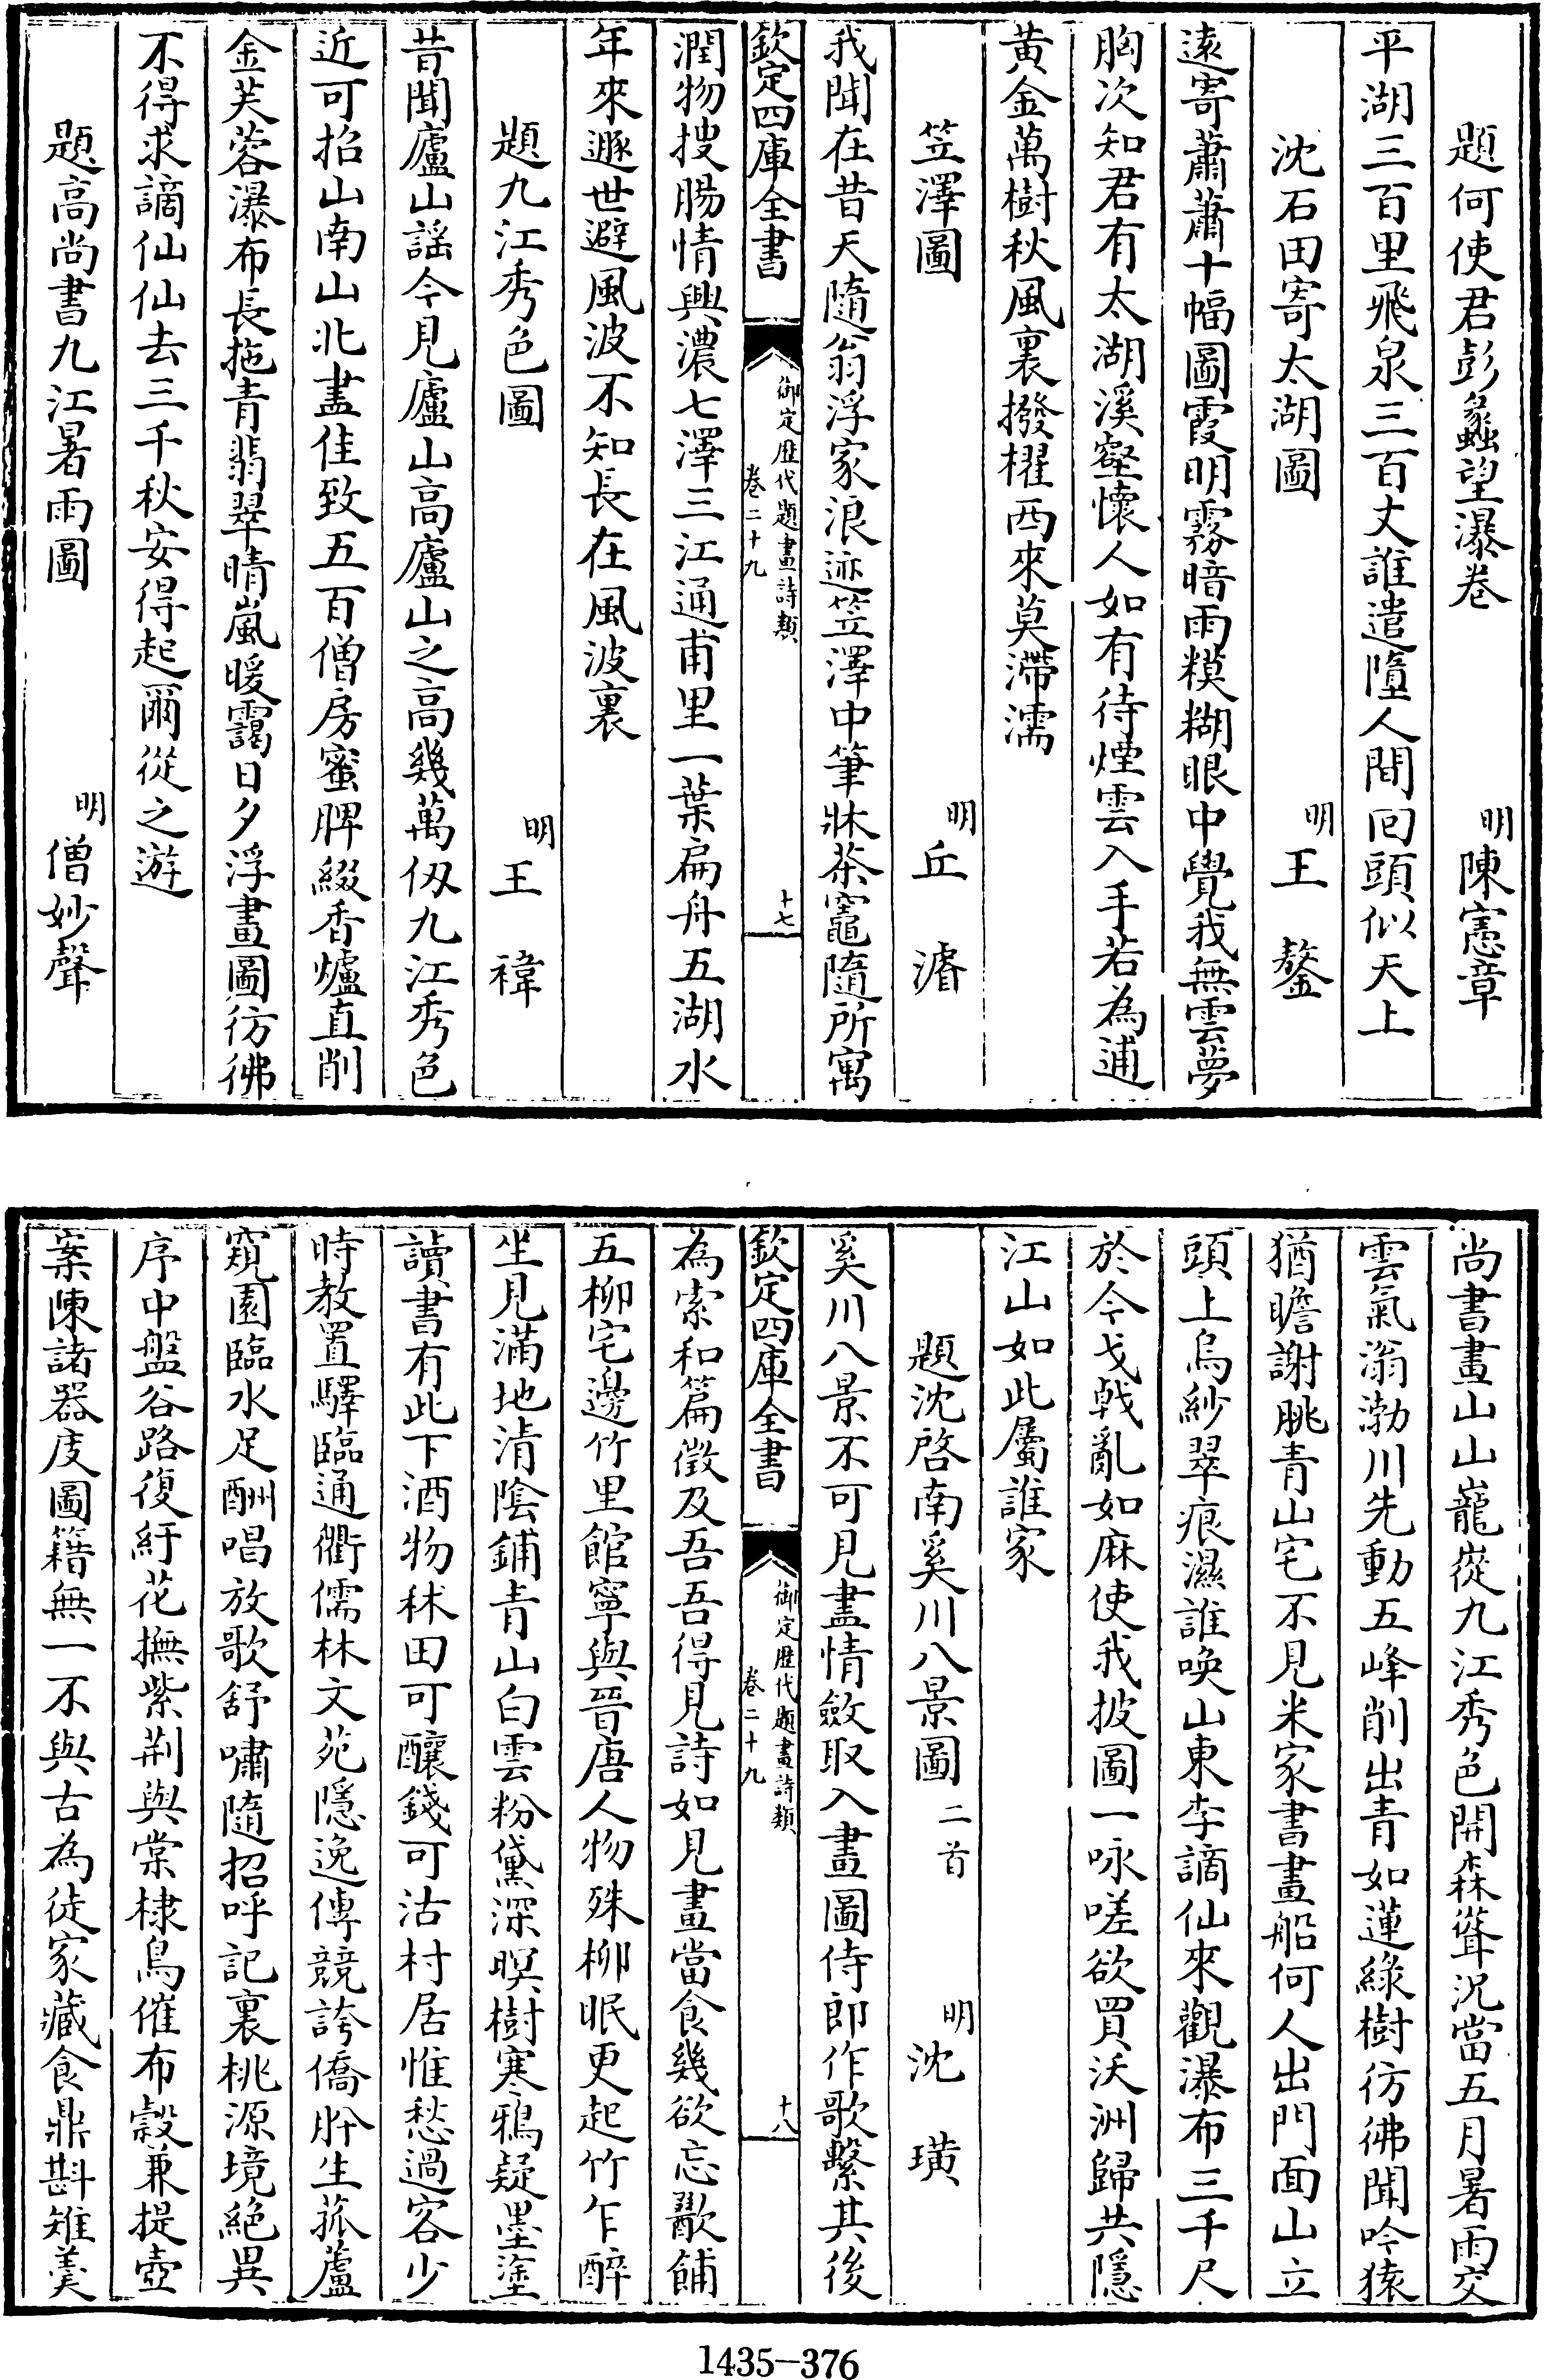 題何使君彭蠡望瀑卷　明陳憲章
平湖三百里飛泉三百丈誰遣墮人間回頭似天上
沈石田寄太湖圖　明王鏊
遠寄蕭蕭十幅圖霞明霧暗雨糢糊眼中覺我無雲夢
胸次知君有太湖溪壑懷人如有待煙雲入手若為逋
黄金萬樹秋風裏撥櫂西來莫滯濡
笠澤圖　明丘濬
我聞在昔天隨翁浮家浪迹笠澤中筆牀茶竈隨所寓
欽定四庫全書　御定歷代題畫詩類　卷二十九　十七
潤物搜腸情興濃七澤三江通甫里一葉扁舟五湖水
年來遯世避風波不知長在風波裏
題九江秀色圖　明王禕
昔聞廬山謡今見廬山高廬山之高幾萬仭九江秀色
近可招山南山北盡佳致五百僧房蜜脾綴香爐直削
金芙蓉瀑布長拖青翡翠晴嵐暖靄日夕浮畫圖彷彿
不得求謫仙仙去三千秋安得起爾從之遊
題高尚書九江暑雨圖　明僧妙聲
尚書畫山山巃嵸九江秀色開森聳況當五月暑雨交
雲氣滃渤川先動五峰削出青如蓮緑樹彷彿聞吟猿
猶瞻謝朓青山宅不見米家書畫船何人出門面山立
頭上烏紗翠痕濕誰喚山東李謫仙來觀瀑布三千尺
於今戈戟亂如麻使我披圖一咏嗟欲買沃洲歸共隱
江山如此屬誰家
題沈啓南奚川八景圖二首　明沈璜
奚川八景不可見盡情斂取入畫圖侍郎作歌繫其後
欽定四庫全書　御定歷代題畫詩類　卷二十九　十八
為索和篇徴及吾吾得見詩如見畫當食幾欲忘歠餔
五柳宅邊竹里館寧與晉唐人物殊柳眠更起竹乍醉
坐見滿地清陰鋪青山白雲粉黛深暝樹寒鴉疑墨塗
讀書有此下酒物秫田可釀錢可沽村居惟愁過客少
時教置驛臨通衢儒林文苑隱逸傳競誇僑肸生菰蘆
窺園臨水足酬唱放歌舒嘯隨招呼記裏桃源境絕異
序中盤谷路復紆花撫紫荆與棠棣鳥催布穀兼提壺
案陳諸器庋圖籍無一不與古為徒家藏食鼎斟雉羮
1435-376